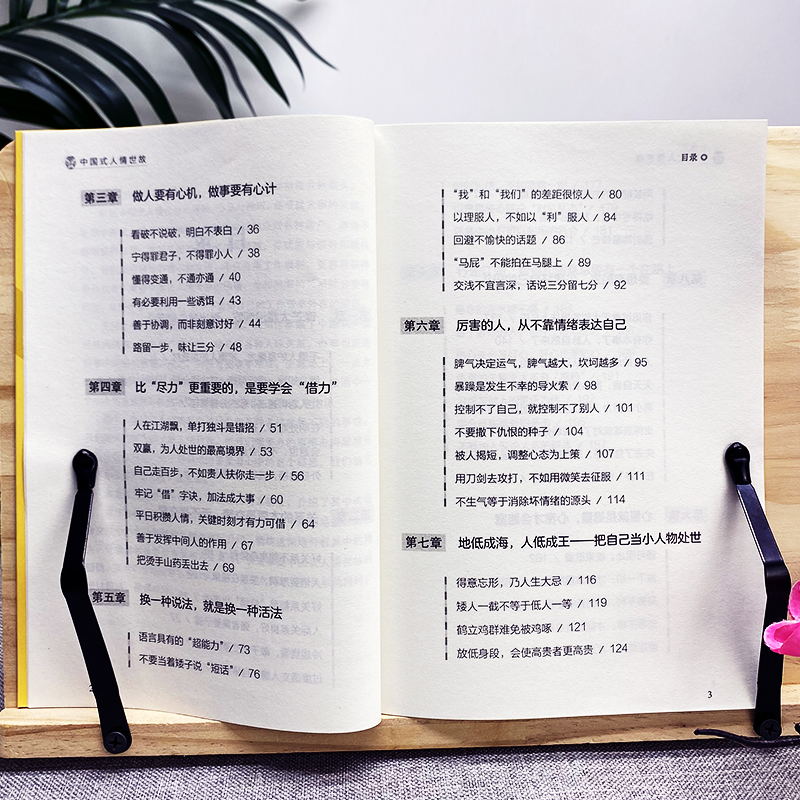 中国式人情世故
第三章 做人要有心机，做事要有心计
看破不说破，明白不表白 / 36
宁得罪君子，不得罪小人 / 38
懂得变通，不通亦通 / 40
有必要利用一些诱饵 / 43
善于协调，而非刻意讨好 / 44
路留一步，味让三分 / 48
第四章 比“尽力”更重要的，是要学会“借力”
人在江湖飘，单打独斗是错招 / 51
双赢，为人处世的最高境界 / 53
自己走百步，不如贵人扶你走一步 / 56
牢记“借”字诀，加法成大事 / 60
平日积攒人情，关键时刻才有力可借 / 64
善于发挥中间人的作用 / 67
把烫手山药丢出去 / 69
第五章 换一种说法，就是换一种活法
语言具有的“超能力” / 73
不要当着矮子说“短话” / 76
目录
“我”和“我们”的差距很惊人 / 80
以理服人，不如以“利”服人 / 84
回避不愉快的话题 / 86
“马屁”不能拍在马腿上 / 89
交浅不宜言深，话说三分留七分 / 92
第六章 厉害的人，从不靠情绪表达自己
脾气决定运气，脾气越大，坎坷越多 / 95
暴躁是发生不幸的导火索 / 98
控制不了自己，就控制不了别人 / 101
不要撒下仇恨的种子 / 104
被人揭短，调整心态为上策 / 107
用刀剑去攻打，不如用微笑去征服 / 111
不生气等于消除坏情绪的源头 / 114
第七章 地低成海，人低成王——把自己当小人物处世
得意忘形，乃人生大忌 / 116
矮人一截不等于低人一等 / 119
鹤立鸡群难免被鸡啄 / 121
放低身段，会使高贵者更高贵 / 124
3